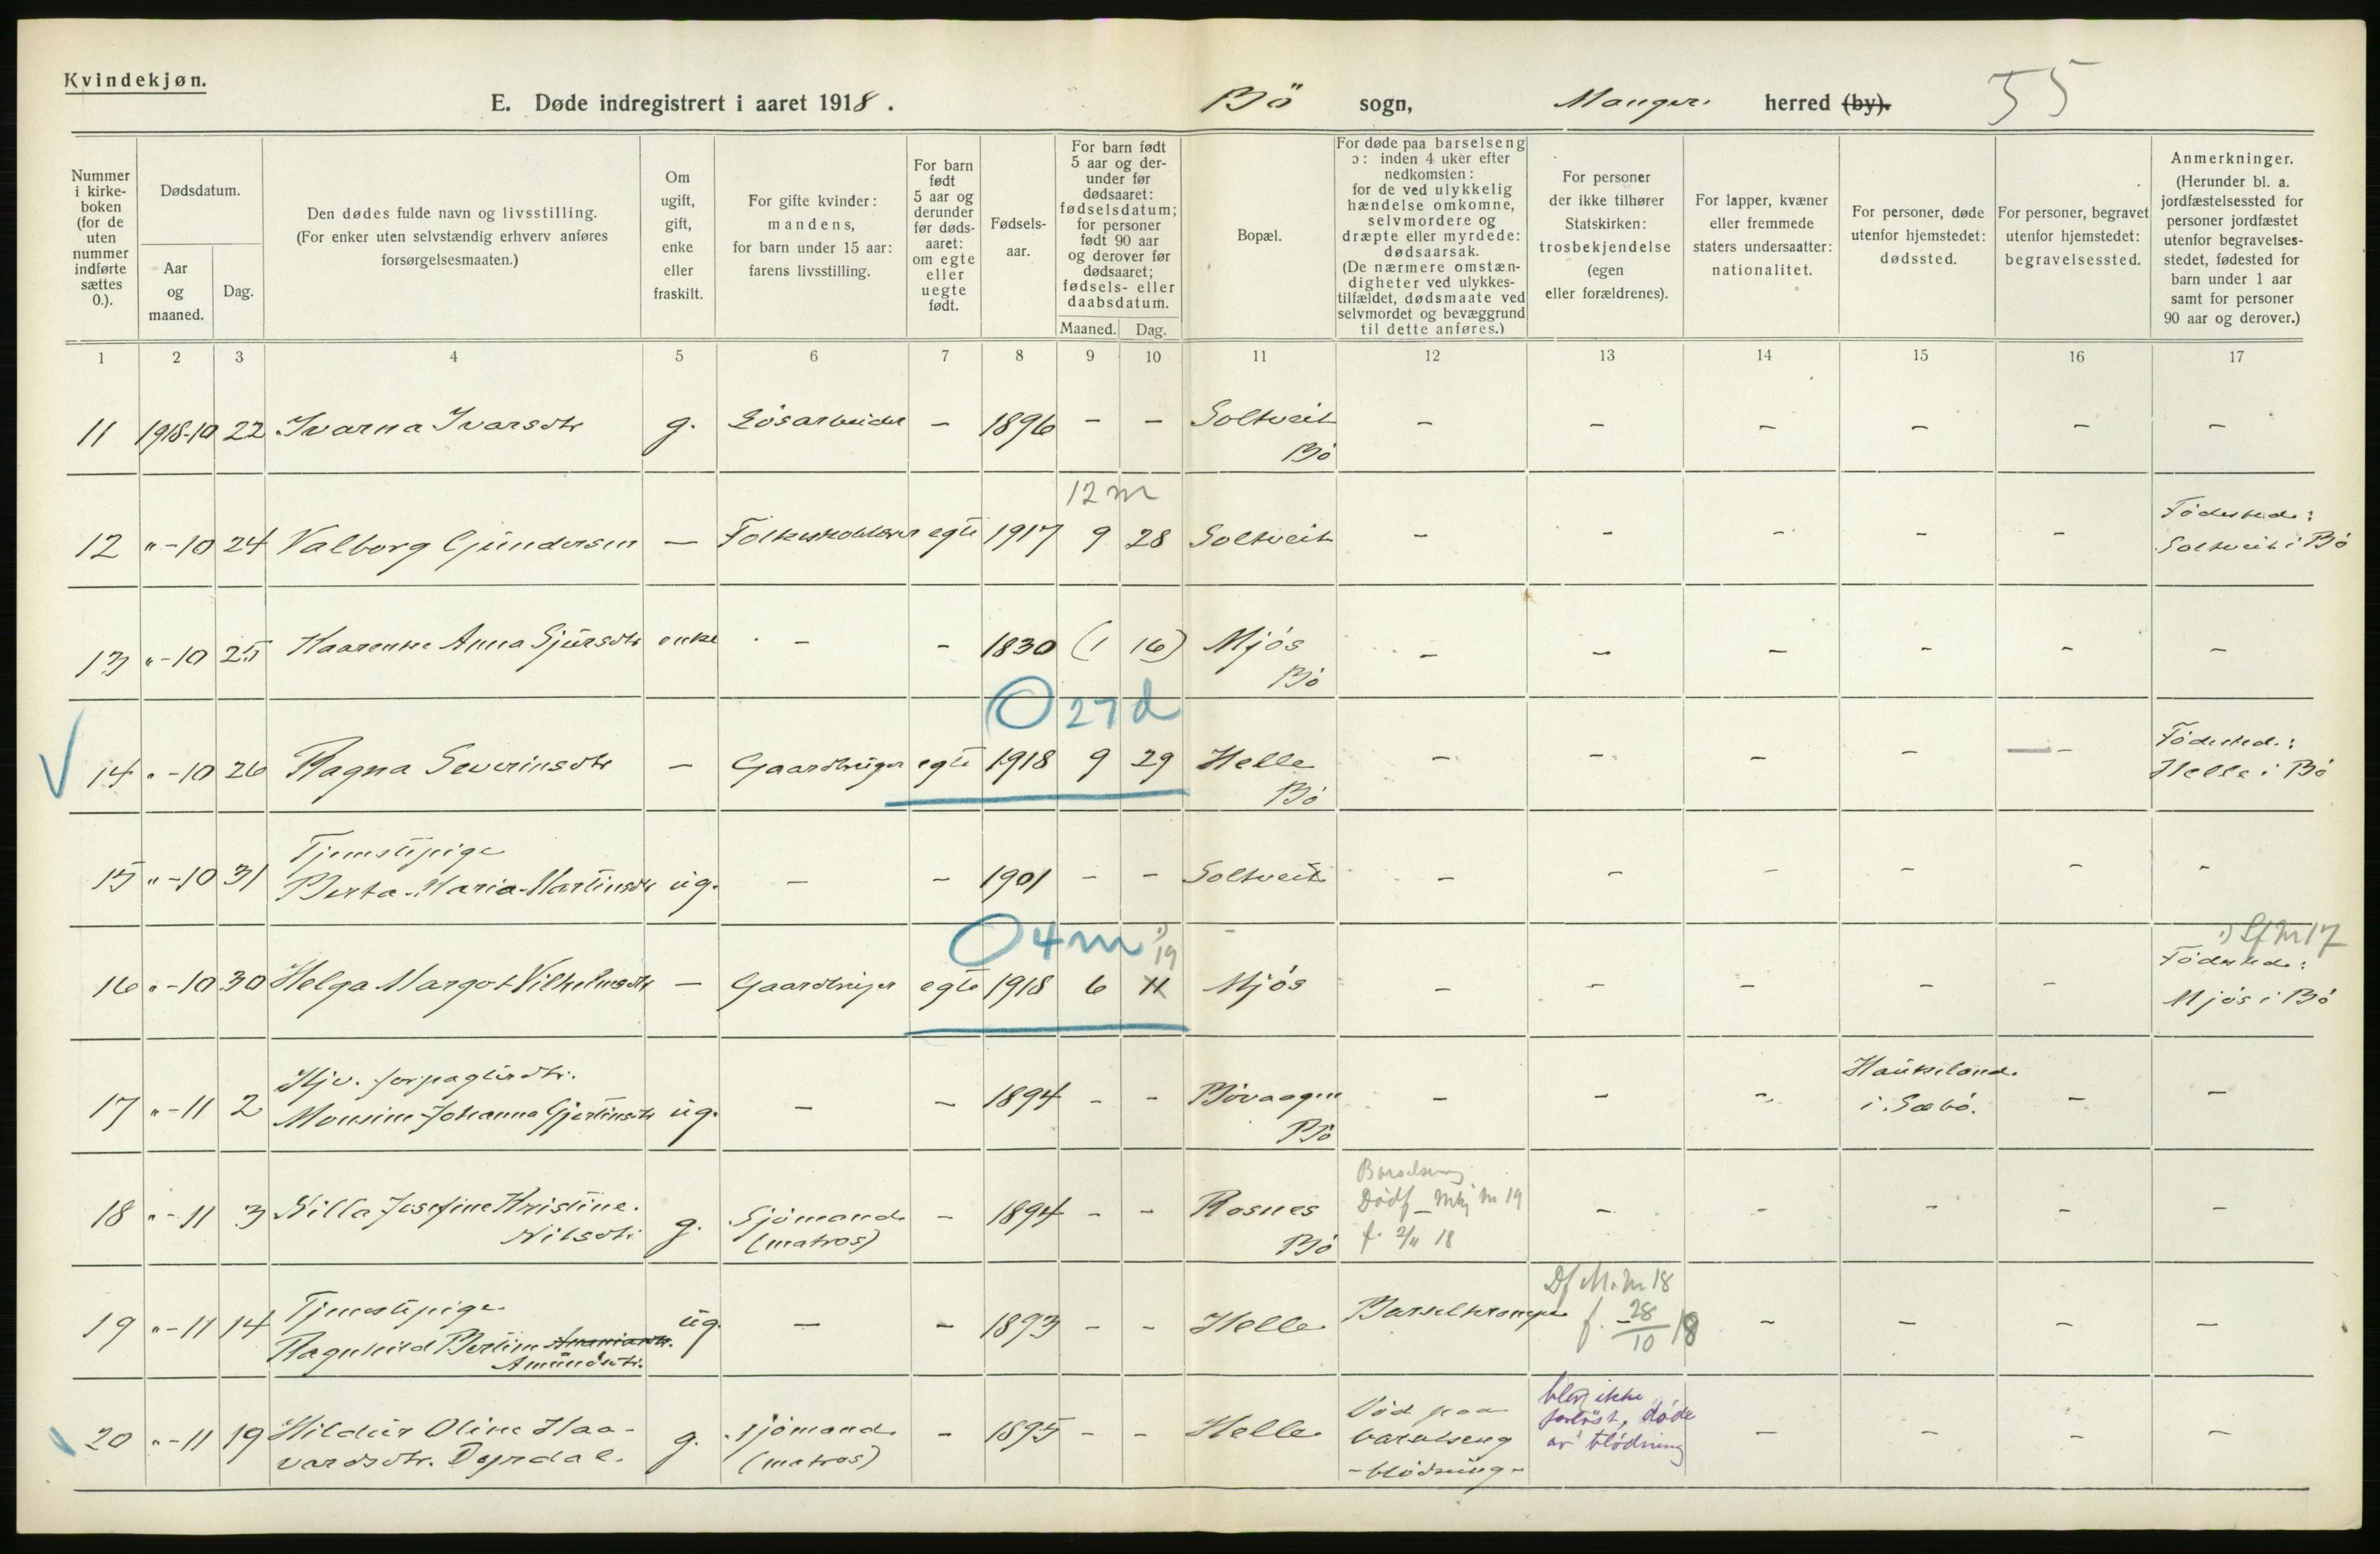 Kvindekjøn.
E. Døde indregistrert i aaret 1918.
Bö sogn, Manger herred (by).
55
Nummer i kirkeboken (for de uten nummer indførte sættes 0.).
Dødsdatum.
Aar og maaned.
Dag.
Den dødes fulde navn og livsstilling.
(For enker uten selvstændig erhverv anføres forsørgelsesmaaten.)
Om ugift, gift, enke eller fraskilt.
For gifte kvinder: mandens, for barn under 15 aar: farens livsstilling.
For barn født 5 aar og derunder før dødsaaret: om egte eller uegte født.
Fødselsaar.
For barn født 5 aar og derunder før dødsaaret: fødselsdatum; for personer født 90 aar og derover før dødsaaret; fødsels- eller daabsdatum.
Maaned. Dag.
Bopæl.
For døde paa barselseng ɔ: inden 4 uker efter nedkomsten: for de ved ulykkelig hændelse omkomne, selvmordere og dræpte eller myrdede: dødsaarsak.
(De nærmere omstændigheter ved ulykkestilfældet, dødsmaate ved selvmordet og bevæggrund til dette anføres.)
For personer der ikke tilhører Statskirken: trosbekjendelse (egen eller forældrenes).
For lapper, kvæner eller fremmede staters undersaatter: nationalitet.
For personer, døde utenfor hjemstedet: dødssted.
For personer, begravet utenfor hjemstedet: begravelsessted.
Anmerkninger.
(Herunder bl. a. jordfæstelsessted for personer jordfæstet utenfor begravelsesstedet, fødested for barn under 1 aar samt for personer 90 aar og derover.)
1 2 3 4 5 6 7 8 9 10 11 12 13 14 15 16 17
11 1918-10 22 Ivarna Ivarsdtr g. Lösarbeider - 1896 - - Soltveit - - - - - -
Bö
12 m
12 "-10 24 Valborg Gundersen - egte 1917 9 28 Soltveit - - - - - Födested: Soltveit i Bö
13 "-10 25 Anna Sjursdtr enke - - 1830 (1 16) Mjös - - - - - -
Bö
O 27 d
14 "-10 26 Ragna Severinsdtr - Gaardbruger egte 1918 9 29 Helle - - - - - Födested: Helle i Bö
Bö
Tjenestepige
15 "-10 31 Berta Maria Martinsdtr ug. - - 1901 - - Soltveit - - - - - -
O 4 m
19
16 "-10 30 Helga Margot Vilhelmsdtr - Gaardbruger egte 1918 6 11 Mjös - - - - - Födested: Mjös i Bö
Hjv. forpagterdtr.
17 "-11 2 Monsine Johanna Gjertinsdtr ug. - - 1894 - - Bövaagen - - - Haukeland i Sæbö. - -
Bö
18 "-11 3 Nilla Josefine Kristine Nilsdtr. g. Sjömand (matros) - 1894 - - Rosnes Barselseng Dödf. Mkj nr 19 f. 2/11 18 - - - - -
Bö
Tjenestepige
19 "-11 14 Ragnhild Bertine Amundsdtr. ug. - - 1893 - - Helle Barselkrampe Df M. nr 18 f. 28/10 18 - - - -
20 "-11 19 Hildur Oline Haavardsdtr. Dyrdal. g. sjömand (matros) - 1895 - - Helle Död paa barselseng - blödning - blev ikke forlöst, döde av blödning - - - -